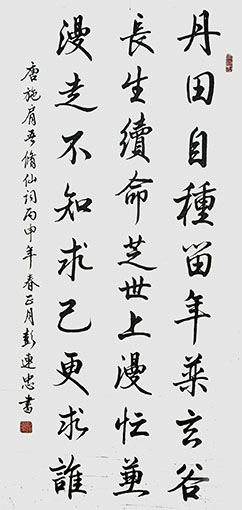 丹田自種留年藥玄谷
長生續命芝世上漫忙兼
漫走不知求己更求誰
唐施肩吾脩仙词丙申年春正月彭連忠書